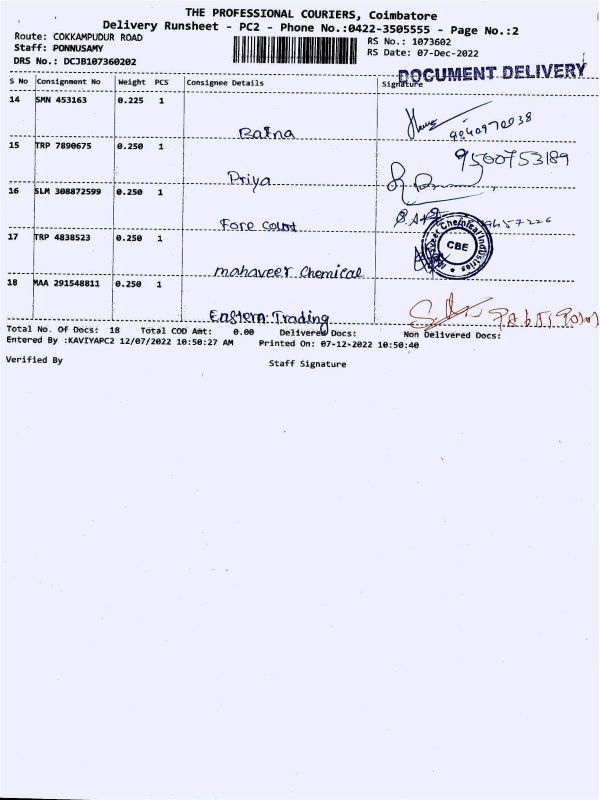 THE PROFESSIONAL COURIERS, Coimbatore
Delivery Runsheet - PC2 - Phone No.:0422-3505555 - Page No.:2
Route: COKKAMPUDUR ROAD
Staff: PONNUSAMY
DRS No.: DCJB107360202
RS No.: 1073602
RS Date: 07-Dec-2022
DOCUMENT DELIVERY
S No Consignment No Weight PCS Consignee Details Signature
14 SMN 453163 0.225 1
Ratna
15 TRP 7890675 0.250 1 9500753189
Priya
16 SLM 308872599 0.250 1
Fore count
17 TRP 4838523 0.250 1
Mahaveer Chemical Industries
CBE
mahaveer Chemical
18 MAA 291548811 0.250 1
Eastern Trading
Total No. Of Docs: 18 Total COD Amt: 0.00 Delivered Docs: Non Delivered Docs:
Entered By :KAVIYAPC2 12/07/2022 10:50:27 AM Printed On: 07-12-2022 10:50:40
Verified By Staff Signature